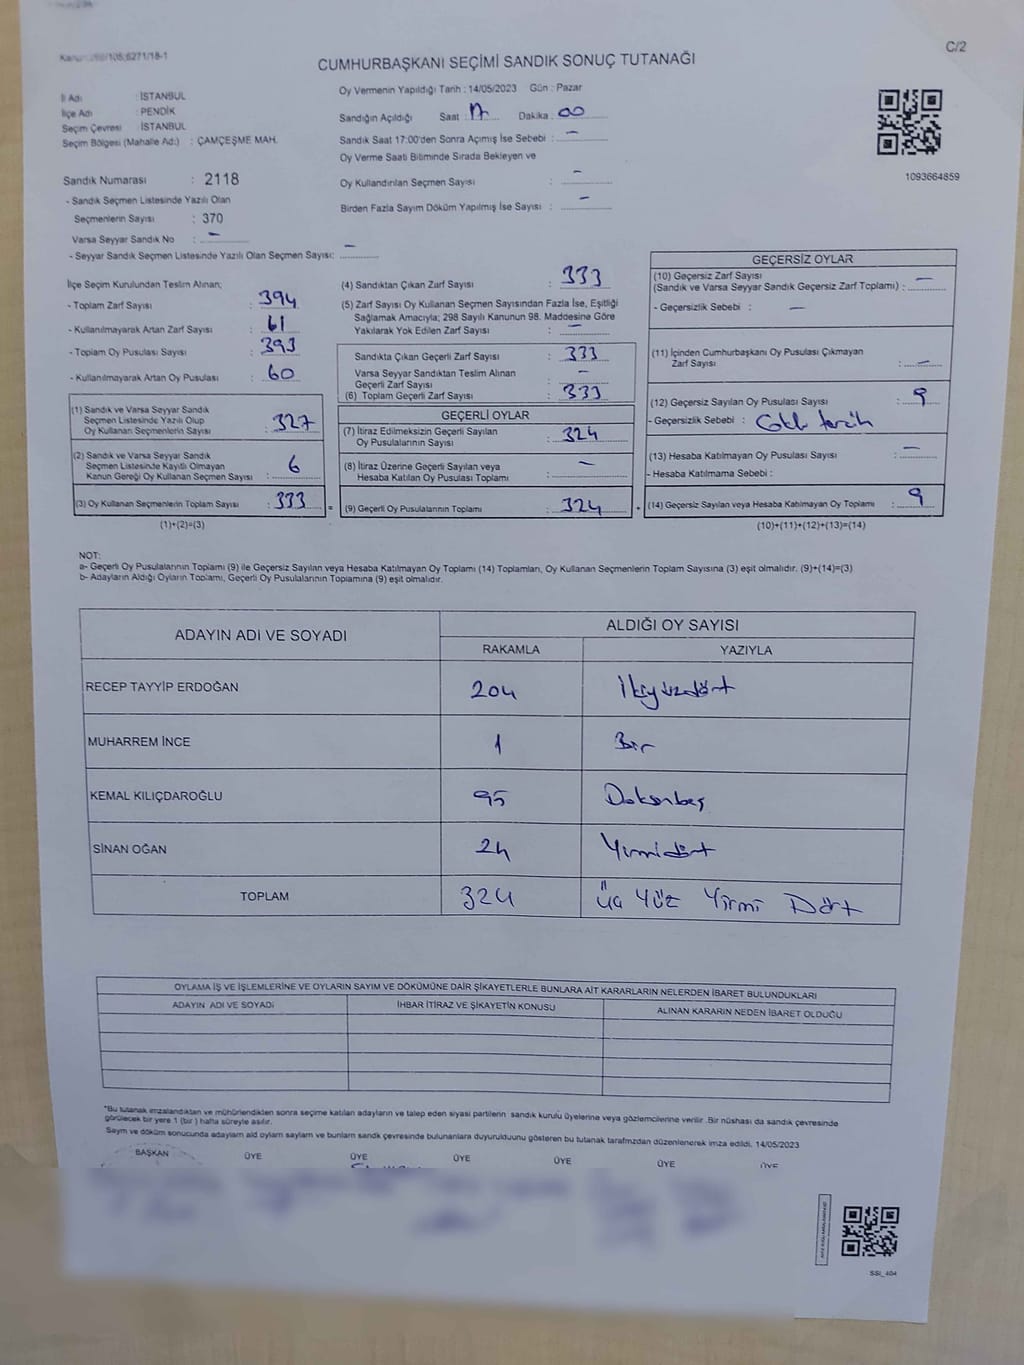 C/2
CUMHURBAŞKANI SEÇİMİ SANDIK SONUÇ TUTANAĞI
İl Adı : İSTANBUL
İlçe Adı : PENDİK
Seçim Çevresi : İSTANBUL
Seçim Bölgesi (Mahalle Ad.) : ÇAMÇEŞME MAH.
Sandık Numarası : 2118
- Sandık Seçmen Listesinde Yazılı Olan
Seçmenlerin Sayısı : 370
Varsa Seyyar Sandık No : –
- Seyyar Sandık Seçmen Listesinde Yazılı Olan Seçmen Sayısı: –
Oy Vermenin Yapıldığı Tarih : 14/05/2023 Gün : Pazar
Sandığın Açıldığı Saat : 17 Dakika : 00
Sandık Saat 17:00'den Sonra Açımış İse Sebebi : –
Oy Verme Saati Bitiminde Sırada Bekleyen ve
Oy Kullandırılan Seçmen Sayısı : –
Birden Fazla Sayım Döküm Yapılmış İse Sayısı : –
1093664859
İlçe Seçim Kurulundan Teslim Alınan;
- Toplam Zarf Sayısı : 394
- Kullanılmayarak Artan Zarf Sayısı : 61
- Toplam Oy Pusulası Sayısı : 393
- Kullanılmayarak Artan Oy Pusulası : 60
(1) Sandık ve Varsa Seyyar Sandık
Seçmen Listesinde Yazılı Olup
Oy Kullanan Seçmenlerin Sayısı : 327
(2) Sandık ve Varsa Seyyar Sandık
Seçmen Listesinde Kayıtlı Olmayan
Kanun Gereği Oy Kullanan Seçmen Sayısı : 6
(3) Oy Kullanan Seçmenlerin Toplam Sayısı : 333
(1)+(2)=(3)
(4) Sandıktan Çıkan Zarf Sayısı : 333
(5) Zarf Sayısı Oy Kullanan Seçmen Sayısından Fazla İse, Eşitliği
Sağlamak Amacıyla; 298 Sayılı Kanunun 98. Maddesine Göre
Yakılarak Yok Edilen Zarf Sayısı : –
Sandıkta Çıkan Geçerli Zarf Sayısı : 333
Varsa Seyyar Sandıktan Teslim Alınan
Geçerli Zarf Sayısı : –
(6) Toplam Geçerli Zarf Sayısı : 333
GEÇERLİ OYLAR
(7) İtiraz Edilmeksizin Geçerli Sayılan
Oy Pusulalarının Sayısı : 324
(8) İtiraz Üzerine Geçerli Sayılan veya
Hesaba Katılan Oy Pusulası Toplamı : –
= (9) Geçerli Oy Pusulalarının Toplamı : 324
GEÇERSİZ OYLAR
(10) Geçersiz Zarf Sayısı
(Sandık ve Varsa Seyyar Sandık Geçersiz Zarf Toplamı) : –
- Geçersizlik Sebebi : –
(11) İçinden Cumhurbaşkanı Oy Pusulası Çıkmayan
Zarf Sayısı : –
(12) Geçersiz Sayılan Oy Pusulası Sayısı : 9
- Geçersizlik Sebebi : Çoklu tercih
(13) Hesaba Katılmayan Oy Pusulası Sayısı : –
- Hesaba Katılmama Sebebi :
+ (14) Geçersiz Sayılan veya Hesaba Katılmayan Oy Toplamı : 9
(10)+(11)+(12)+(13)=(14)
NOT:
a- Geçerli Oy Pusulalarının Toplamı (9) ile Geçersiz Sayılan veya Hesaba Katılmayan Oy Toplamı (14) Toplamları, Oy Kullanan Seçmenlerin Toplam Sayısına (3) eşit olmalıdır. (9)+(14)=(3)
b- Adayların Aldığı Oyların Toplamı, Geçerli Oy Pusulalarının Toplamına (9) eşit olmalıdır.
ADAYIN ADI VE SOYADI ALDIĞI OY SAYISI
RAKAMLA YAZIYLA
RECEP TAYYİP ERDOĞAN 204 İkiyüzdört
MUHARREM İNCE 1 Bir
KEMAL KILIÇDAROĞLU 95 Doksanbeş
SİNAN OĞAN 24 Yirmidört
TOPLAM 324 Üç Yüz Yirmi Dört
OYLAMA İŞ VE İŞLEMLERİNE VE OYLARIN SAYIM VE DÖKÜMÜNE DAİR ŞİKAYETLERLE BUNLARA AİT KARARLARIN NELERDEN İBARET BULUNDUKLARI
ADAYIN ADI VE SOYADI İHBAR İTİRAZ VE ŞİKAYETİN KONUSU ALINAN KARARIN NEDEN İBARET OLDUĞU
*Bu tutanak imzalandıktan ve mühürlendikten sonra seçime katılan adayların ve talep eden siyasi partilerin sandık kurulu üyelerine veya gözlemcilerine verilir. Bir nüshası da sandık çevresinde
görülecek bir yere 1 (bir ) hafta süreyle asılır.
Sayım ve döküm sonucunda adayların
BAŞKAN ÜYE ÜYE ÜYE ÜYE ÜYE ÜYE
SSI_404